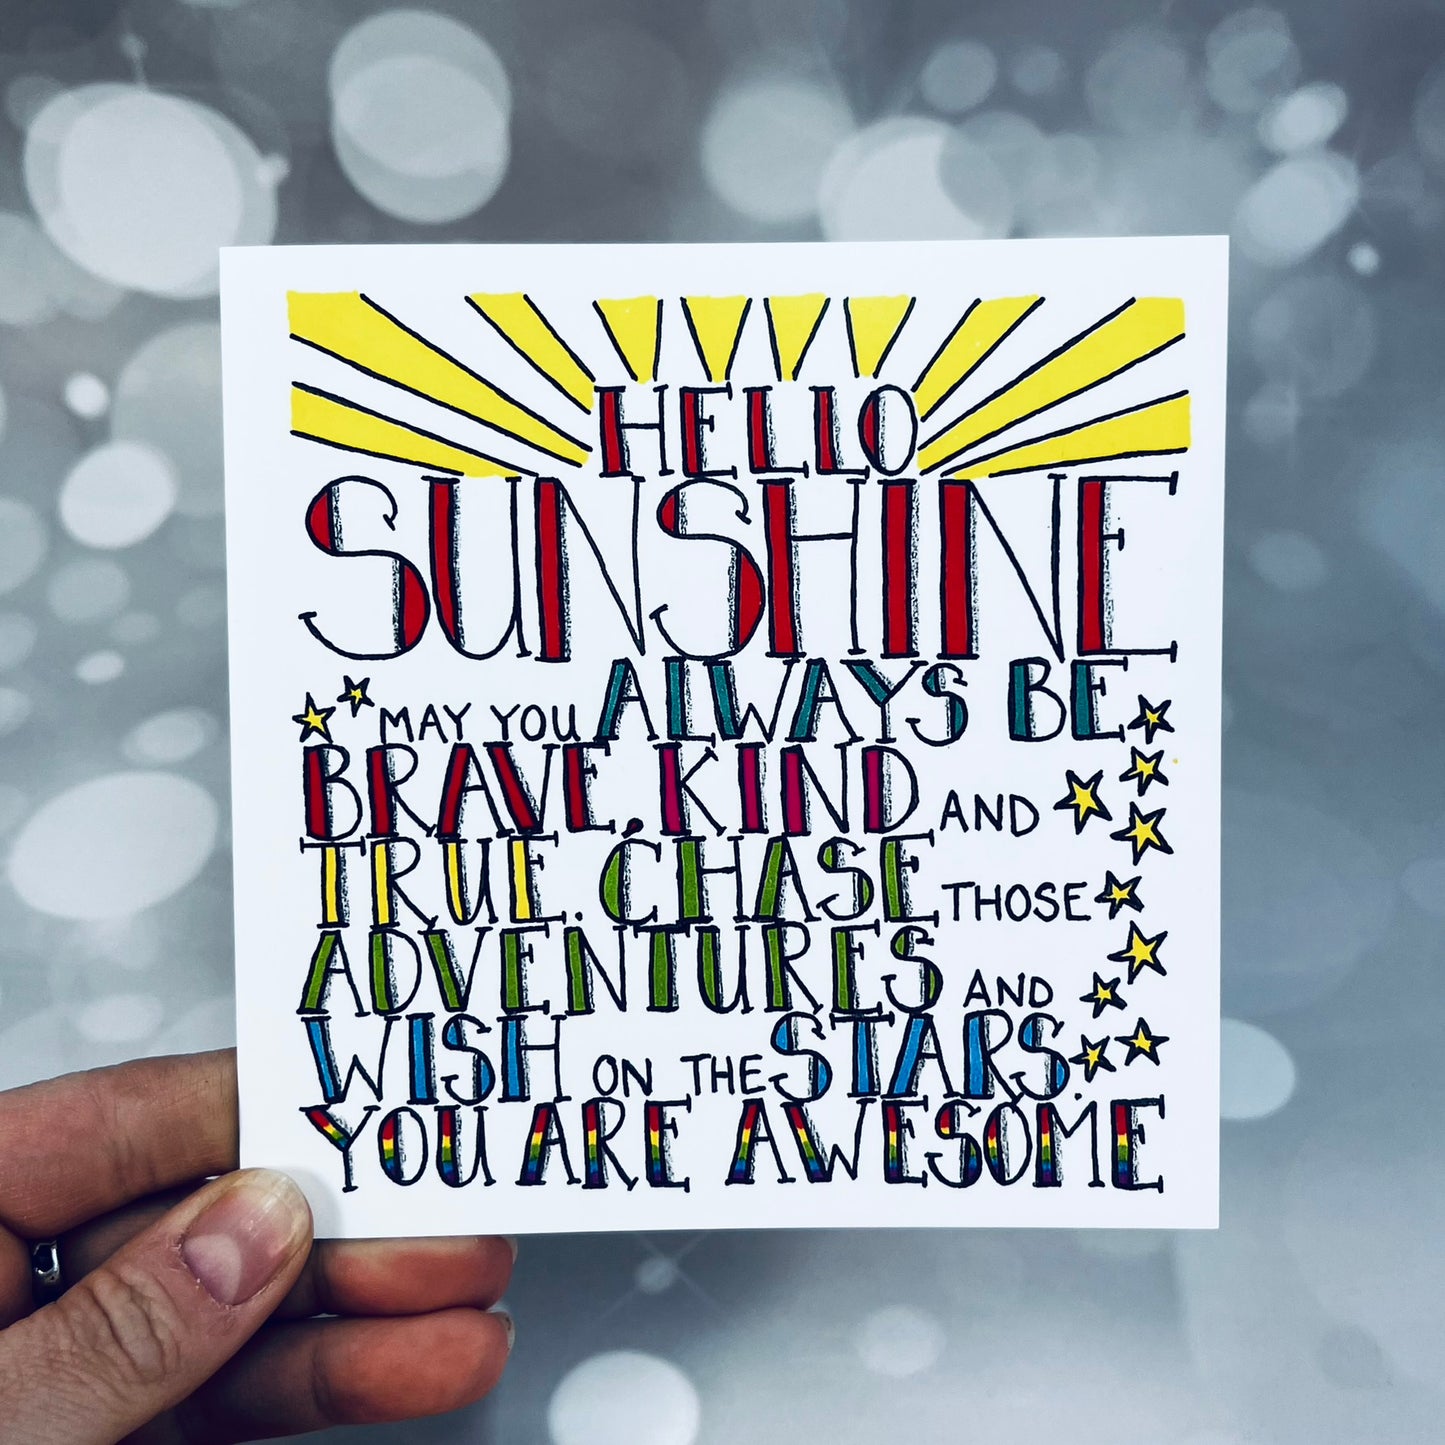 HELLO
SUNSHINE
MAY YOU ALWAYS BE
BRAVE, KIND AND
TRUE. CHASE THOSE
ADVENTURES AND
WISH ON THE STARS.
YOU ARE AWESOME